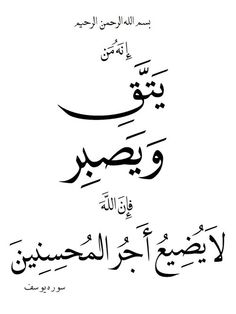 بسم الله الرحمن الرحيم
إِنَهُ مَن
يَتَّقِ
وَيَصبِر
فإِنَ اللَّهَ
لاَ يُضِيعُ أَجُرُ المُحسِنِينَ
سوره يوسف